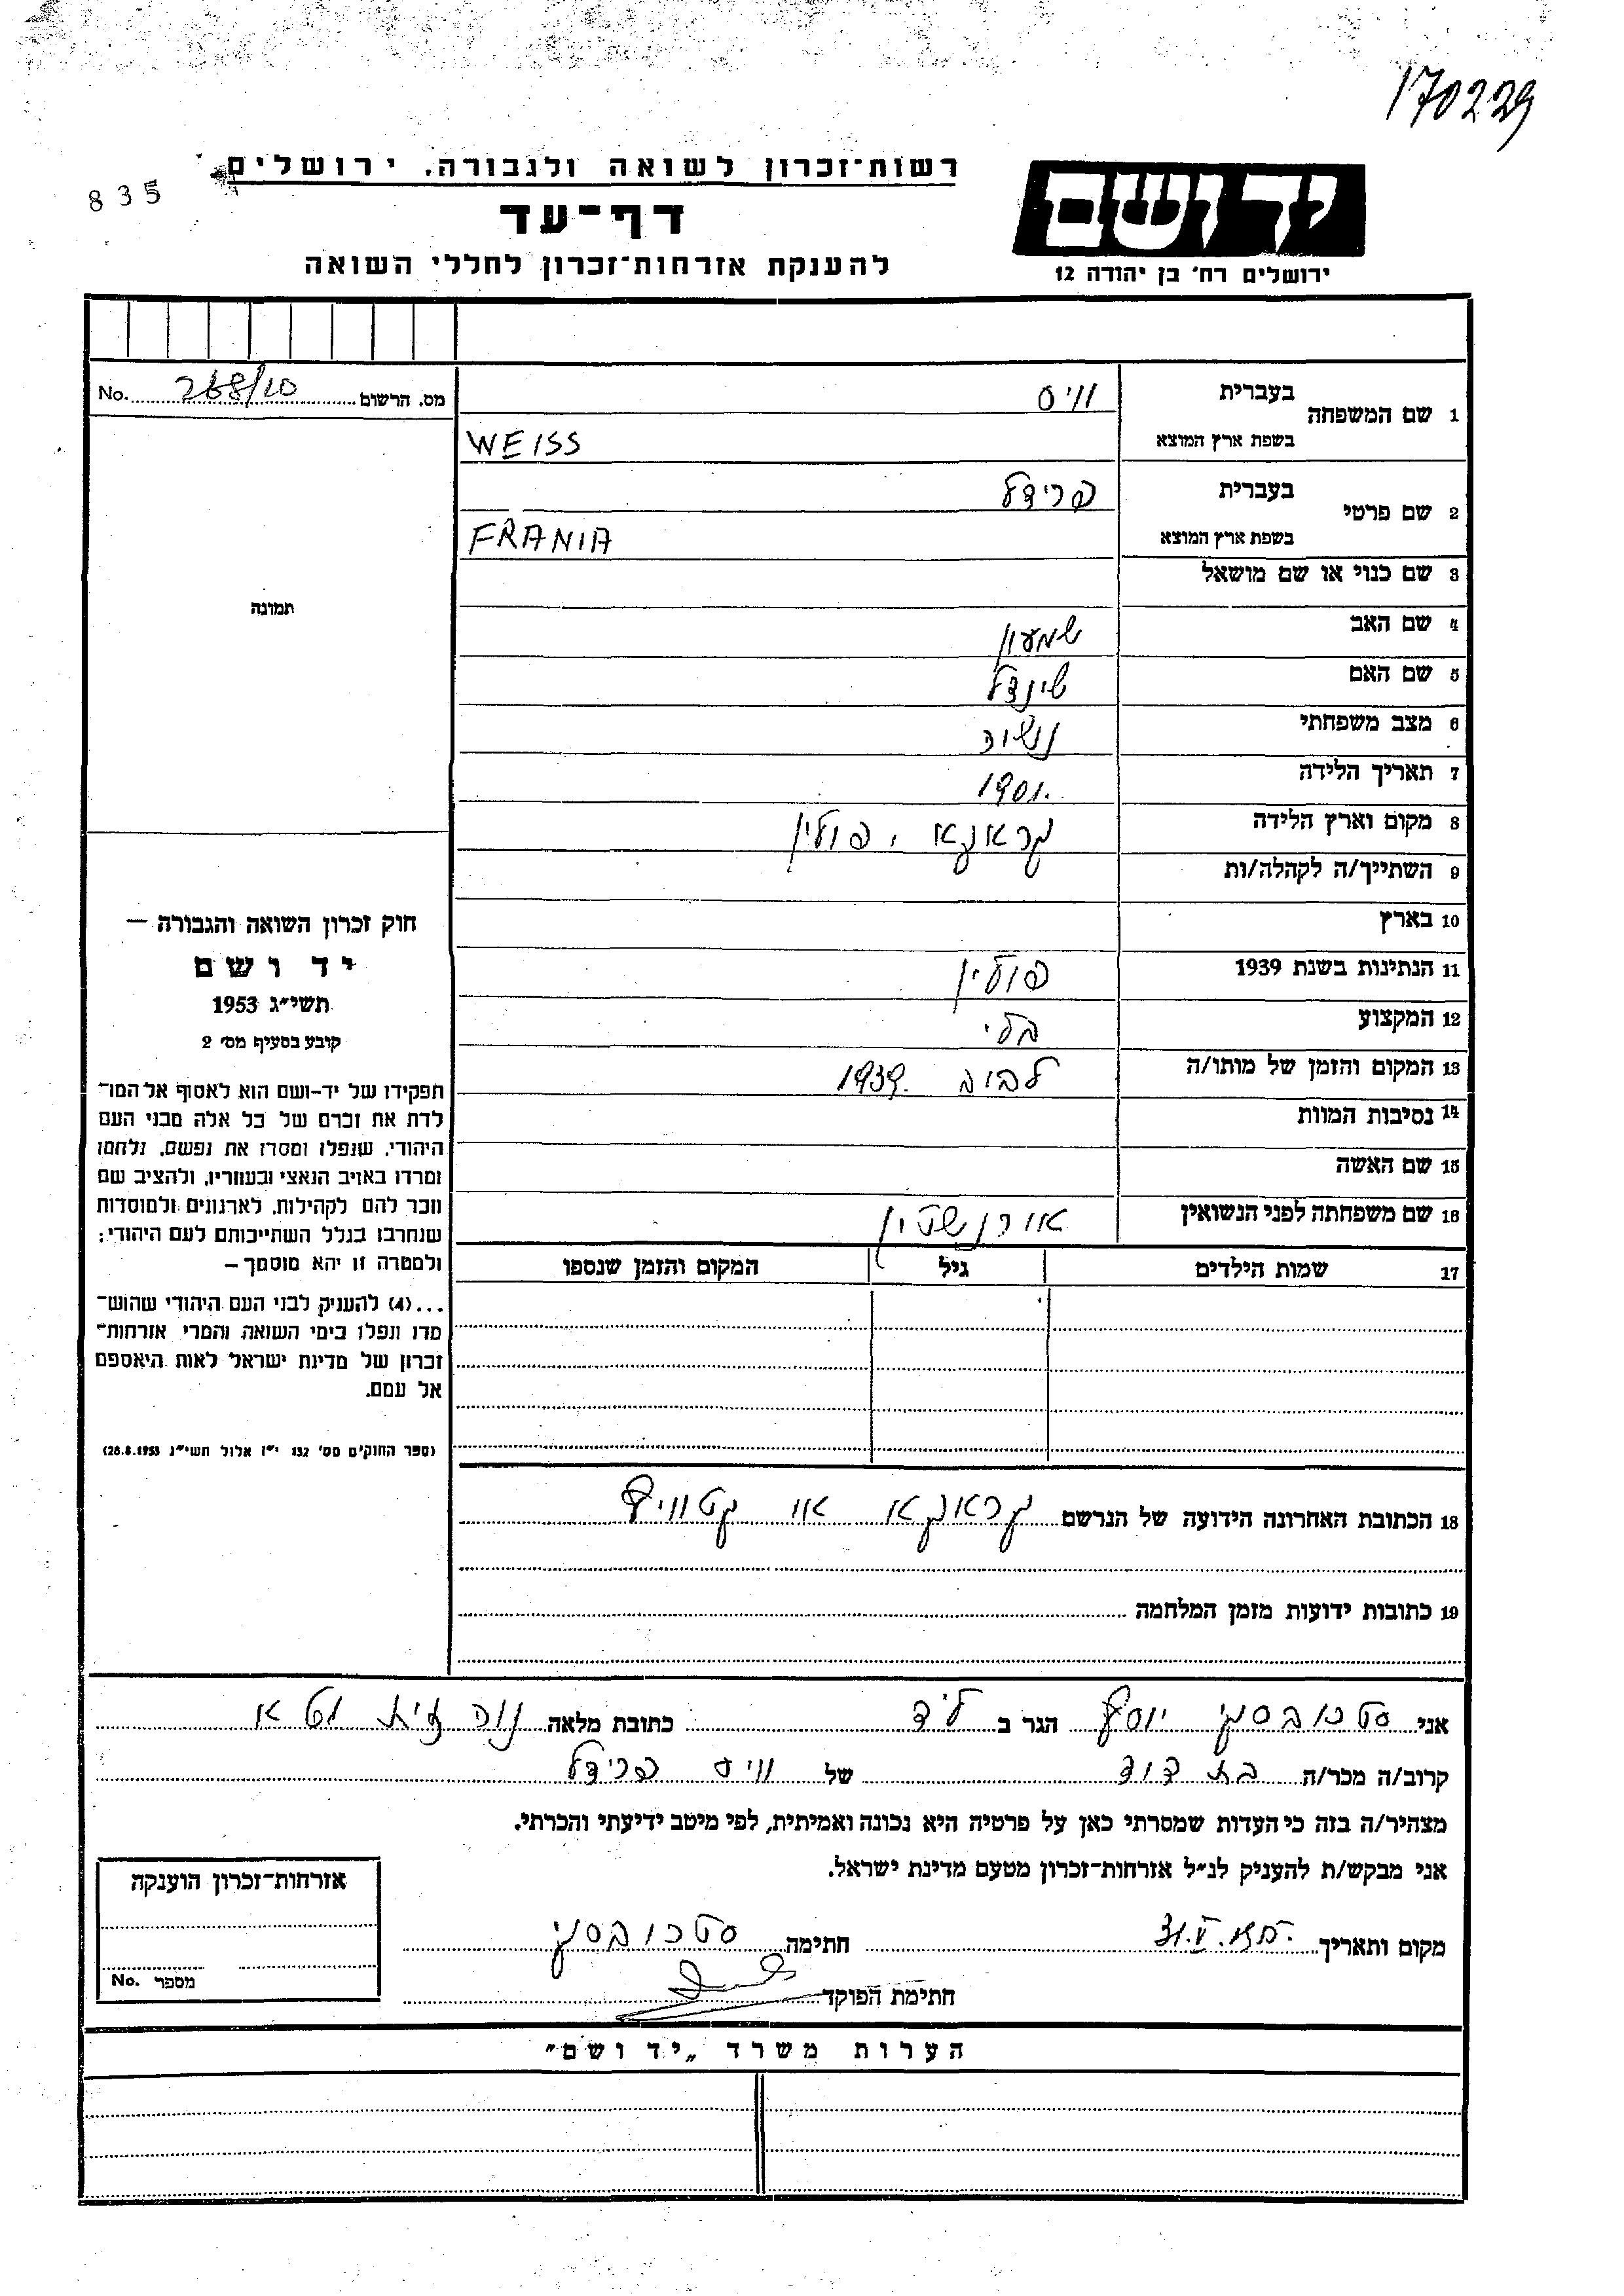 170229
רשות־זכרון לשואה ולגבורה, ירושלים
835
יד ושם
דף־עד
ירושלים רח' בן יהודה 12
להענקת אזרחות־זכרון לחללי השואה
מס. הרשום 268/20 No.
1 שם המשפחה
בעברית ווייס
בשפת ארץ המוצא WEISS
2 שם פרטי
בעברית פרידל
בשפת ארץ המוצא FRANIA
3 שם כנוי או שם מושאל
תמונה
4 שם האב שמעון
5 שם האם שינדל
6 מצב משפחתי נשוה
7 תאריך הלידה 1901
8 מקום וארץ הלידה קראקא, פולין
9 השתייך/ה לקהלה/ות
10 בארץ
11 הנתינות בשנת 1939 פולין
12 המקצוע בלי
13 המקום והזמן של מותו/ה לבוב 1939
14 נסיבות המוות
15 שם האשה
16 שם משפחתה לפני הנשואין אורנשטין
17 שמות הילדים גיל המקום והזמן שנספו
חוק זכרון השואה והגבורה –
יד ושם
תשי״ג 1953
קובע בסעיף מס' 2
תפקידו של יד־ושם הוא לאסוף אל המו־
לדת את זכרם של כל אלה מבני העם
היהודי, שנפלו ומסרו את נפשם, נלחמו
ומרדו באויב הנאצי ובעוזריו, ולהציב שם
וזכר להם לקהילות, לארגונים ולמוסדות
שנחרבו בגלל השתייכותם לעם היהודי;
ולמטרה זו יהא מוסמך –
...(4) להעניק לבני העם היהודי שהוש־
מדו ונפלו בימי השואה והמרי אזרחות־
זכרון של מדינת ישראל לאות היאספם
אל עמם.
(ספר החוקים מס' 132 י״ז אלול תשי״ג 28.8.1953)
18 הכתובת האחרונה הידועה של הנרשם קראקא או קטוויץ
19 כתובות ידועות מזמן המלחמה
אני סטרובסקי יוסף הגר ב לוד כתובת מלאה נוה זית
קרוב/ה מכר/ה בת דוד של ווייס פרידל
מצהיר/ה בזה כי העדות שמסרתי כאן על פרטיה היא נכונה ואמיתית, לפי מיטב ידיעתי והכרתי.
אני מבקש/ת להעניק לנ״ל אזרחות־זכרון מטעם מדינת ישראל.
מקום ותאריך 31.V. חתימה סטרובסקי
חתימת הפוקד
אזרחות־זכרון הוענקה
מספר No.
הערות משרד „יד ושם״